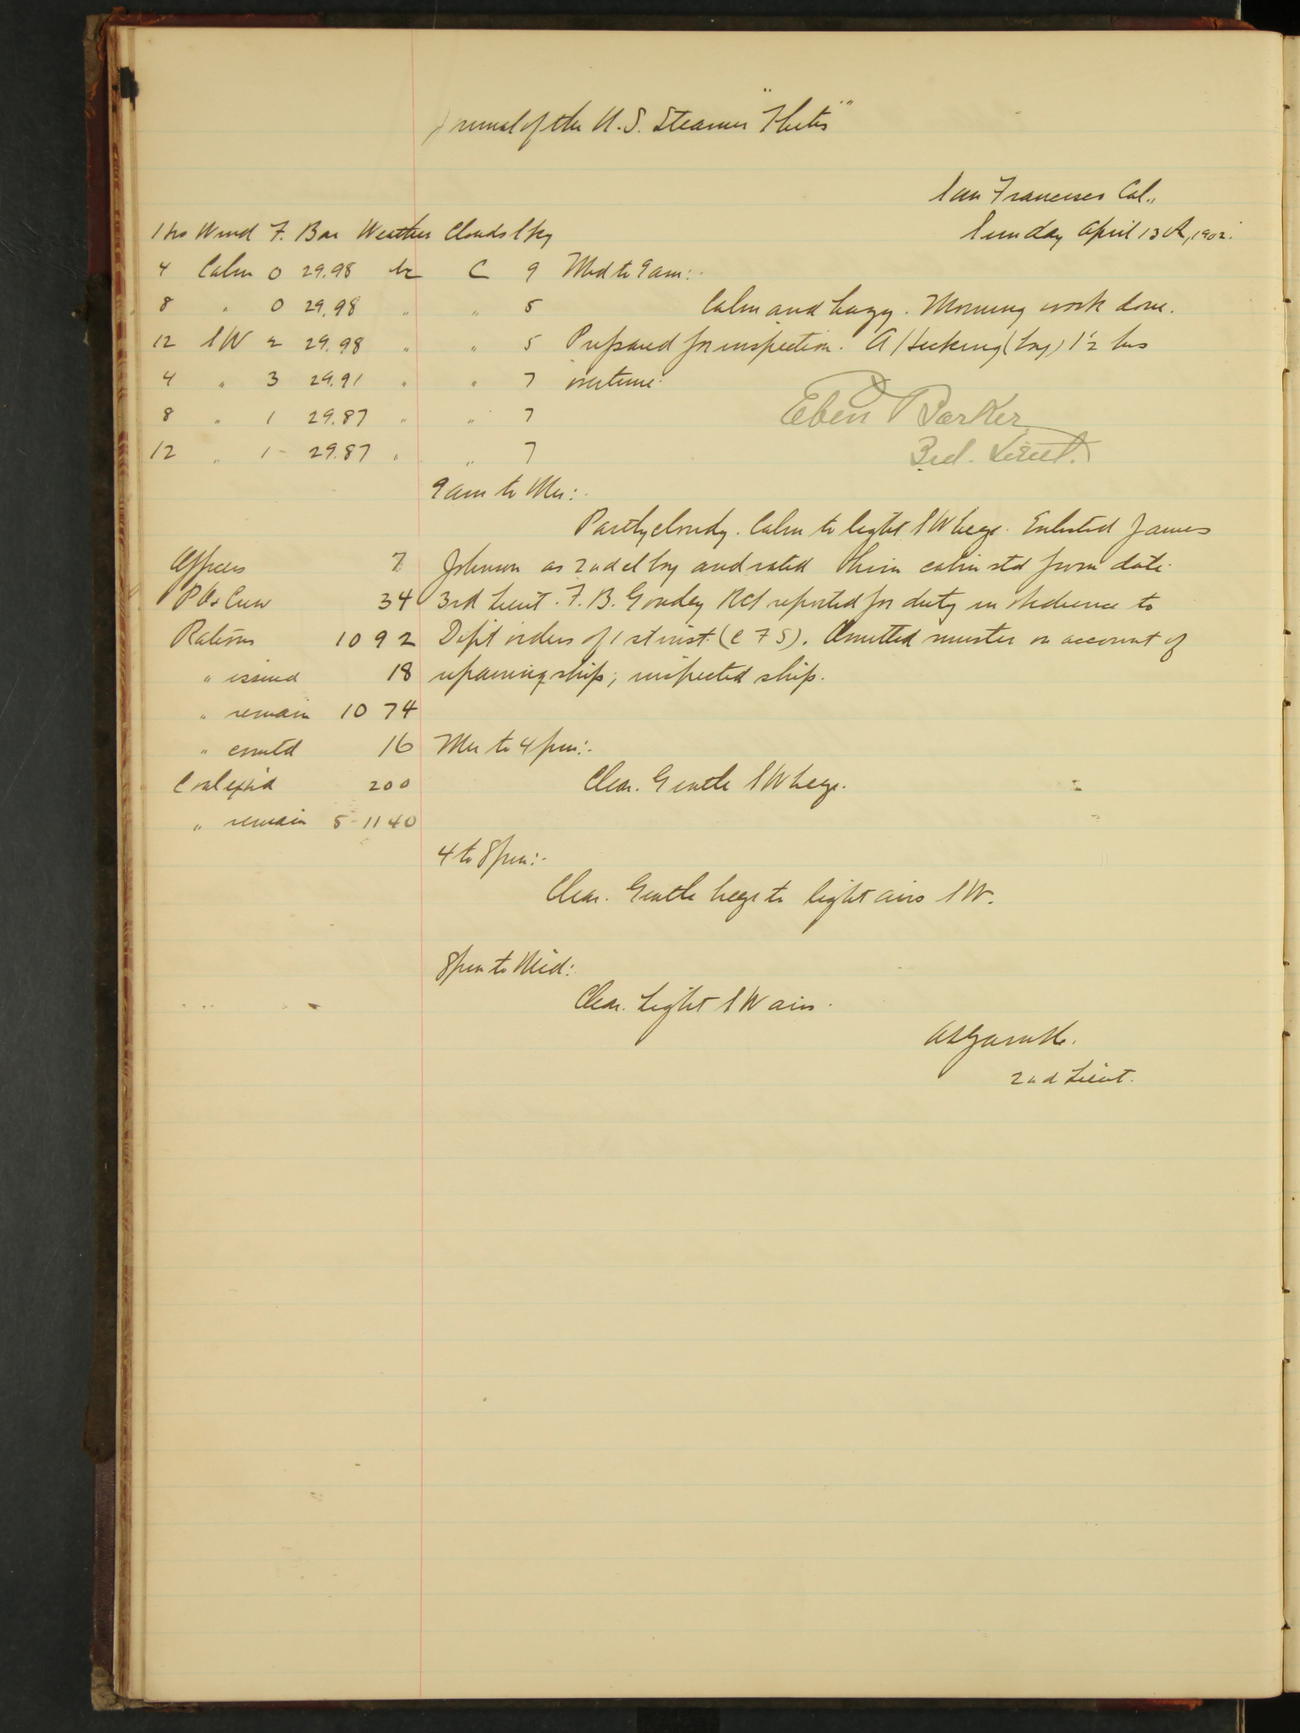 Journal of the U.S. Steamer "Thetis"
San Francisco Cal.,
Sunday April 13th, 1902.
Hrs Wind F. Bar Weather Clouds Sky
4 Calm 0 29.98 bc C 9 Mid to 9am:-
8 " 0 29.98 " " 5 Calm and hazy. Morning work done.
12 SW 2 29.98 " " 5 Prepared for inspection. A (boy) 1½ hrs
4 " 3 29.91 " " 7 overtime.
8 " 1 29.87 " " 7 Eben Barker
12 " 1 29.87 " " 7 3rd. Lieut.
9am to Mer:-
Partly cloudy. Calm to light SW breeze. Enlisted James
Officers 7 Johnson as 2nd cl boy and rated him cabin std from date.
POs Crew 34 3rd Lieut. F. B. Goudey RCS reported for duty in obedience to
Rations 1092 Dept orders of 1st inst. (C F S). Omitted muster on account of
" issued 18 repairing ship; inspected ship.
" remain 1074
" comtd 16 Mer to 4pm:-
Coal expd 200 Clear. Gentle SW breeze.
" remain 5-1140
4 to 8pm:-
Clear. Gentle breeze to light airs SW.
8pm to Mid:
Clear. Light SW airs.
2nd Lieut.